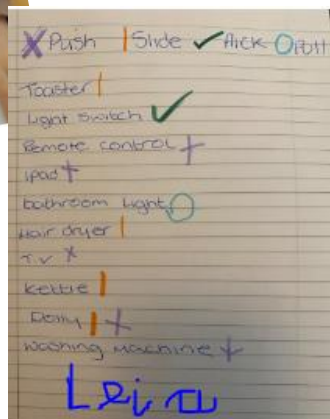 X Push | Slide ✓ Flick O Pull
Toaster |
Light Switch ✓
Remote control X
ipad X
bathroom light O
Hair dryer |
T.v X
Kettle |
| X
Washing Machine X